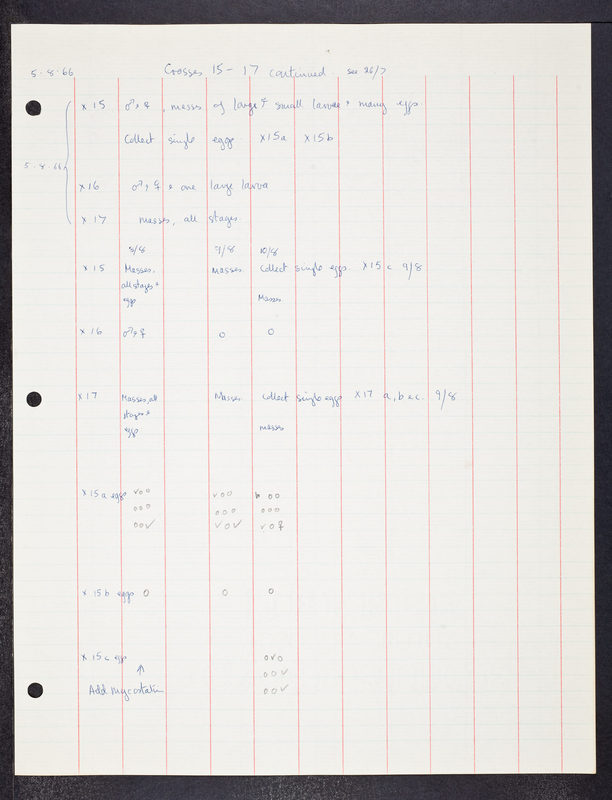 5.8.66 Crosses 15 - 17 continued. see 26/7
x 15 ♂, ♀, masses of large & small larvae & many eggs
Collect single eggs. x15a x15b
5.8.66
x16 ♂, ♀ & one large larva
x 17 masses, all stages.
8/8 9/8 10/8
x 15 Masses. Masses Collect single eggs x15c 9/8
all stages &
eggs Masses
x 16 ♂, ♀ 0 0
x17 Masses, all Masses Collect single eggs x17 a, b & c. 9/8
stages &
eggs masses
x 15a eggs ✓00 ✓00 00
000 000 000
00✓ ✓0✓ ✓0♀
x 15b eggs 0 0 0
x 15c eggs 0✓0
↑ 00✓
Add mycostatin 00✓